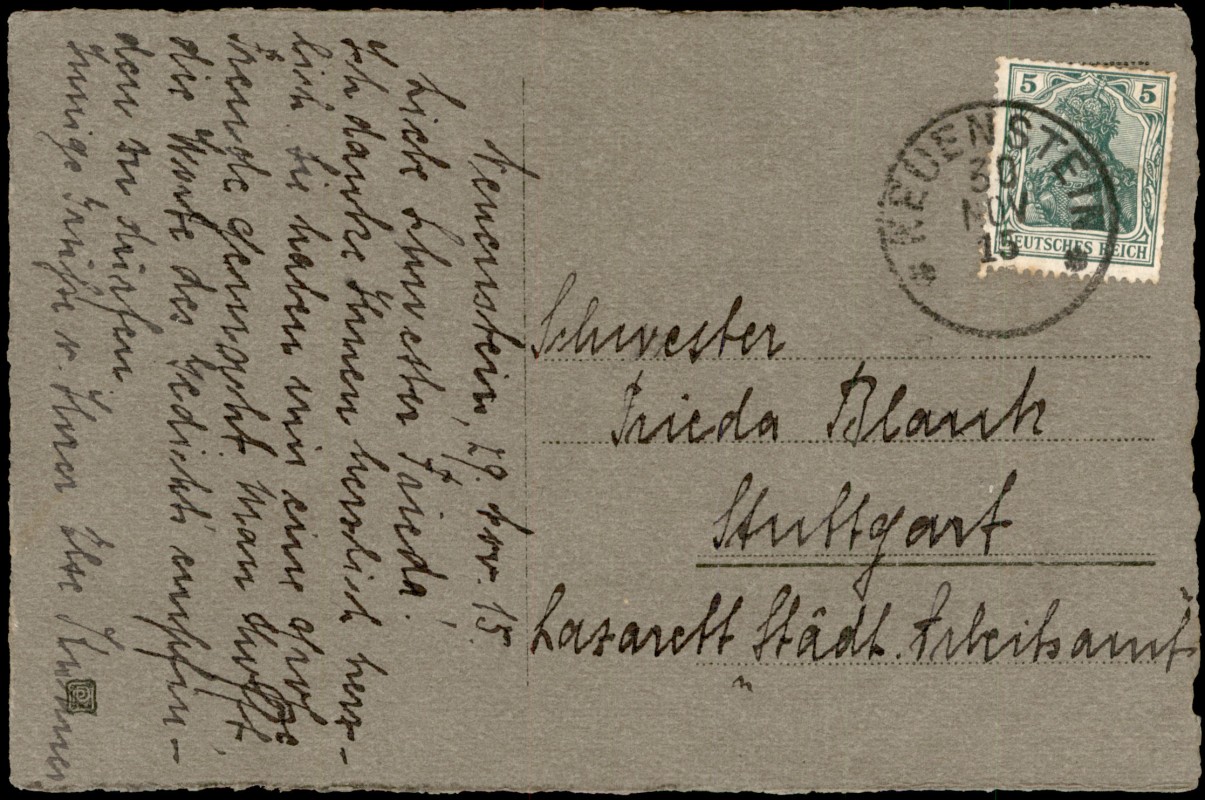 Neuenstein, 29. Nov. 15.
Liebe Schwester Frieda!
Ich danke Ihnen herzlich herz-
lich. Sie haben mir eine große
Freude gemacht. Man
die Worte des Gedichts empfin-
den zu dürfen.
Innige Grüße v. Ihrer Ilse
5 5
DEUTSCHES REICH
NEUENSTEIN
30
NOV
15
Schwester
Frieda Blank
Stuttgart
Lazarett "Städt. Arbeitsamt"